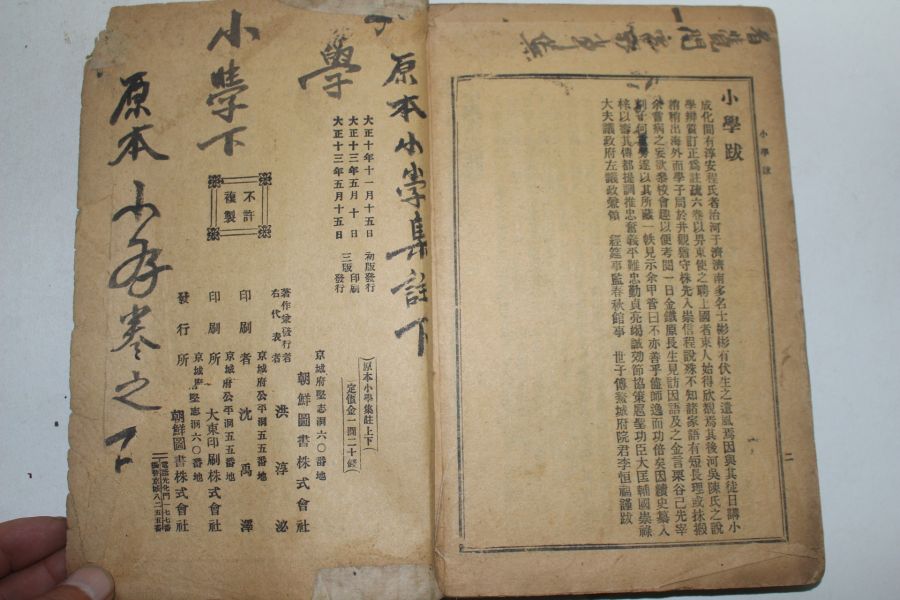 小學跋
二
成化間有淳安程氏者治河于濟濟南多名士彬彬有伏生之遺風焉因與其徒日講小
學辨質訂正爲註疏六卷以畀東使之聘上國者東人始得欣覩焉其後河吳陳氏之說
稍稍出海外而學子局於井觀猶守株先入崇信程說殊不知諸家語有短長理或扶搬
余嘗病之妄欲叅校會趣以便考閱一日金鐵原長生見訪因語及之金言栗谷己先宰
割 何重勞遂以其所藏一帙見示余 曰不亦善乎儘師逸而功倍矣因 入
梓以壽其傳都提調推忠奮義平難忠勤貞亮竭誠効節協策扈聖功臣大匡輔國崇祿
大夫議政府左議政兼領 經筵事監春秋館事 世子傅鰲城府院君李恒福謹跋
原本小學集註下
學
小學下
原本小學卷之下
大正十年十一月十五日 初版發行
大正十三年五月十日 三版印刷
大正十三年五月十五日 三版發行
(原本小學集註上下)
(定價金一圓二十錢)
不許複製
京城府堅志洞六〇番地
著作兼發行者 朝鮮圖書株式會社
右代表者 洪淳泌
京城府公平洞五五番地
印刷者 沈禹澤
京城府公平洞五五番地
印刷所 大東印刷株式會社
京城府堅志洞六〇番地
發行所 朝鮮圖書株式會社
電話光化門一一七七番
振替京城八二五五番